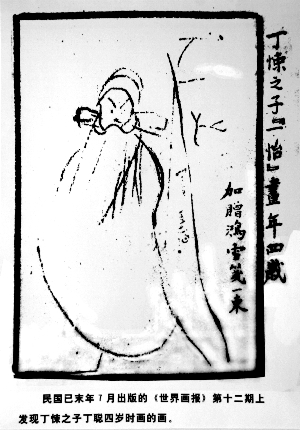 丁悚之子『一怡』畫年四歲
加贈鴻雪箋一束
民国已末年7月出版的《世界画报》第十二期上
发现丁悚之子丁聪四岁时画的画。